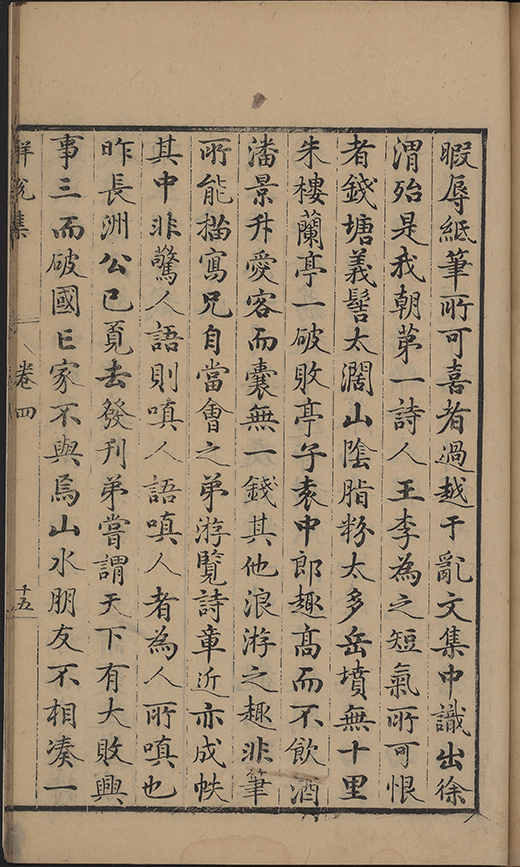 暇辱紙筆所可喜者過越于亂文集中識出徐
渭殆是我朝苐一詩人王李為之短氣所可恨
者錢塘義髻太濶山陰脂粉太多岳墳無十里
朱樓蘭亭一破敗亭子袁中郎趣高而不飲酒
潘景升愛客而囊無一錢其他浪游之趣非筆
所能描寫兄自當會之弟游覽詩章近亦成帙
其中非驚人語則嗔人語嗔人者為人所嗔也
昨長洲公已覔去發刊弟嘗謂天下有大敗興
事三而破國亡家不與焉山水朋友不相凑一
解脫集
卷四
十五